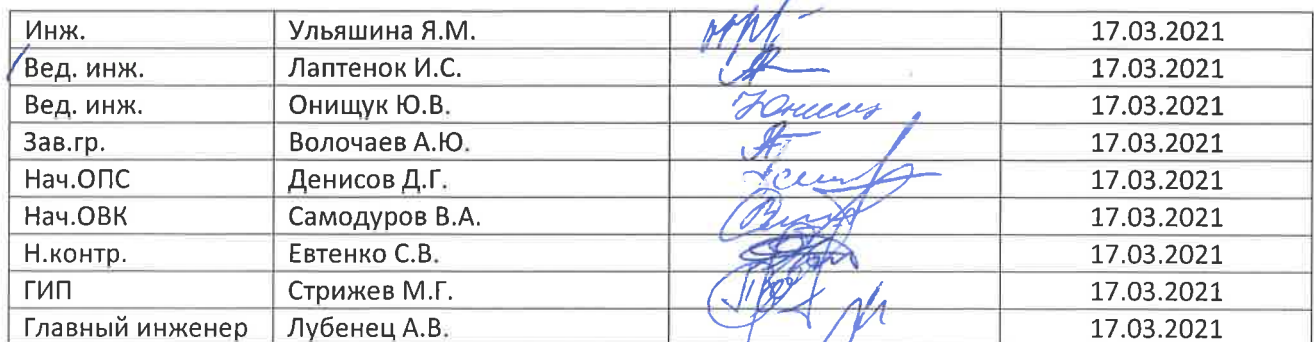 Инж. Ульяшина Я.М. 17.03.2021
Вед. инж. Лаптенок И.С. 17.03.2021
Вед. инж. Онищук Ю.В. 17.03.2021
Зав.гр. Волочаев А.Ю. 17.03.2021
Нач.ОПС Денисов Д.Г. 17.03.2021
Нач.ОВК Самодуров В.А. 17.03.2021
Н.контр. Евтенко С.В. 17.03.2021
ГИП Стрижев М.Г. 17.03.2021
Главный инженер Лубенец А.В. 17.03.2021